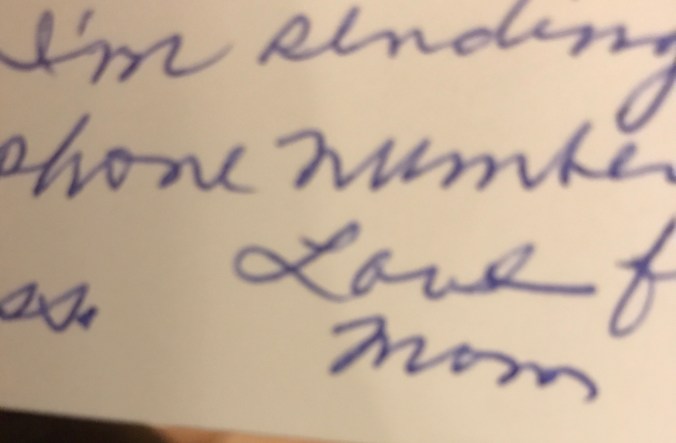 I'm sending
phone number
ss. Love
Mom